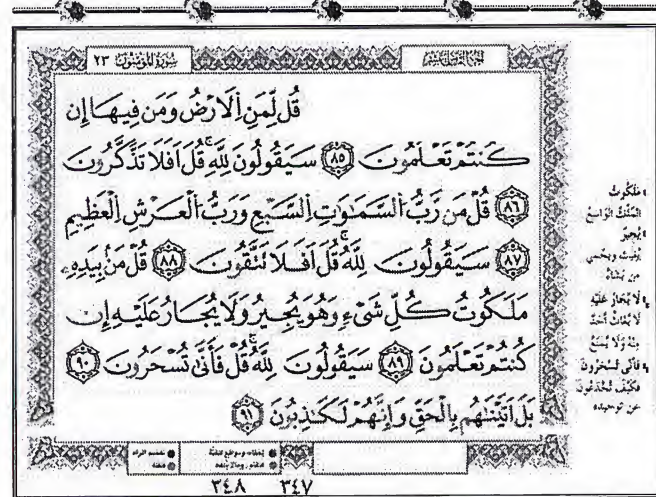 سُورَةُ الْمُؤْمِنُونَ ٢٣
قُل لِّمَنِ اِلَارْضُ وَمَن فِيهَا إِن
كُنتُمْ تَعْلَمُونَ ٨٥ سَيَقُولُونَ لِلَّهِ قُلَ اَفَلَا تَذَّكَّرُونَ
٨٦ قُلْ مَن رَّبُّ السَّمَٰوَٰتِ اِلسَّبْعِ وَرَبُّ الْعَرْشِ اِلْعَظِيمِ
٨٧ سَيَقُولُونَ لِلَّهِ قُلَ اَفَلَا تَتَّقُونَ ٨٨ قُلْ مَنۢ بِيَدِهِۦ
مَلَكُوتُ كُلِّ شَيْءٍ وَهُوَ يُجِيرُ وَلَا يُجَارُ عَلَيْهِ إِن
كُنتُمْ تَعْلَمُونَ ٨٩ سَيَقُولُونَ لِلَّهِ قُلْ فَأَنَّىٰ تُسْحَرُونَ ٩٠
بَلَ اَتَيْنَٰهُم بِالْحَقِّ وَإِنَّهُمْ لَكَٰذِبُونَ ٩١
مَلَكُوتُ
المُلْكُ الوَاسِعُ
يُجِيرُ
يُغِيثُ وَيَحْمِي
مَن يَشَاءُ
لَا يُجَارُ عَلَيْهِ
لَا يُغَاثُ أَحَدٌ
مِنْهُ وَلَا يُمْنَعُ
فَأَنَّى تُسْحَرُونَ
فَكَيْفَ تُخْدَعُونَ
عن توحيده
٢٤٨ ٣٤٧